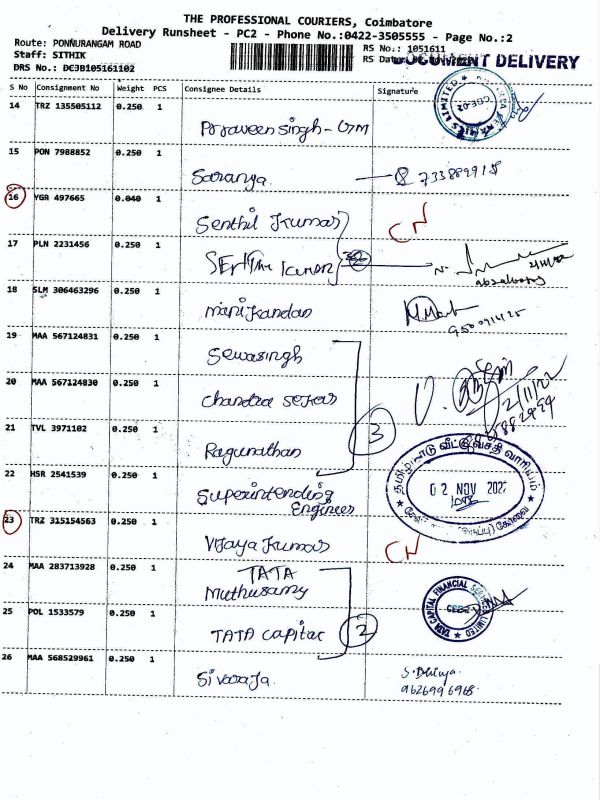 THE PROFESSIONAL COURIERS, Coimbatore
Delivery Runsheet - PC2 - Phone No.:0422-3505555 - Page No.:2
Route: PONNURANGAM ROAD
Staff: SITHIK
DRS No.: DCJB105161102
RS No.: 1051611
RS Da
DOCUMENT DELIVERY
S No Consignment No Weight PCS Consignee Details Signature
14 TRZ 135505112 0.250 1 Praveen Singh - Gm
15 PON 7988852 0.250 1 Saranya
16 YGR 497665 0.040 1 Senthil Kumar CN
17 PLN 2231456 0.250 1
18 SLM 306463296 0.250 1 Manikandan
19 MAA 567124831 0.250 1 Sewasingh
20 MAA 567124830 0.250 1 Chandra Sekar
3
21 TVL 3971102 0.250 1 Ragunathan
22 HSR 2541539 0.250 1 Superintending Engineer
தமிழ்நாடு வீட்டுவசதி வாரியம்
02 NOV 2022
23 TRZ 315154563 0.250 1 Vijaya Kumar CN
24 MAA 283713928 0.250 1 TATA
Muthusamy
TATA CAPITAL FINANCIAL SERVICES LIMITED
25 POL 1533579 0.250 1 TATA Capital 2
26 MAA 568529961 0.250 1 Sivaraja S. Dhivya
9626996968